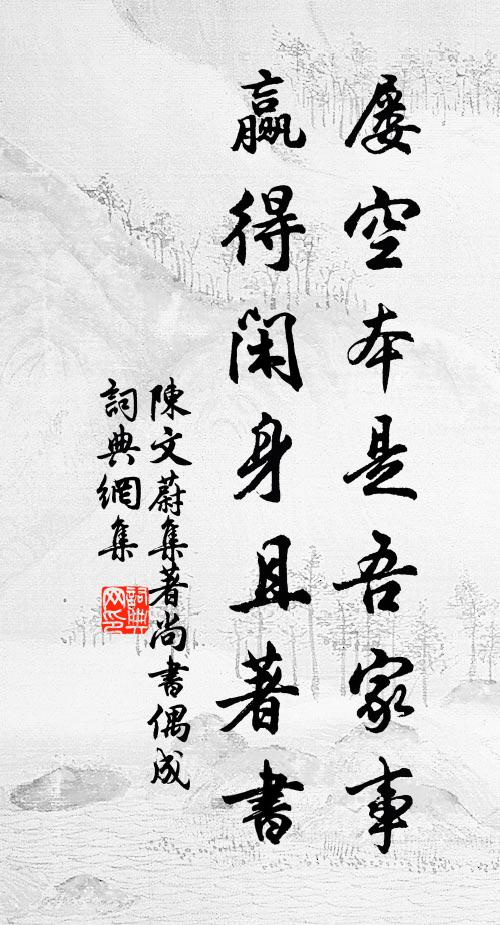 屡空本是吾家事
贏得閑身且著書
陳文蔚集著尚書偶成
詞典網集
詞典網印